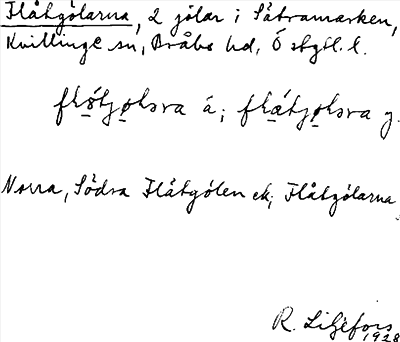 Flåtgölarna, 2 gölar i Sätramarken,
Kvillinge sn, Bråbo hd, Östgtl. l.
flǻtjø̱lsra ä; flǽtjø̱lsra y.
Norra, Södra Flåtgölen ek; Flåtgölarna
R. Liljefors
1928